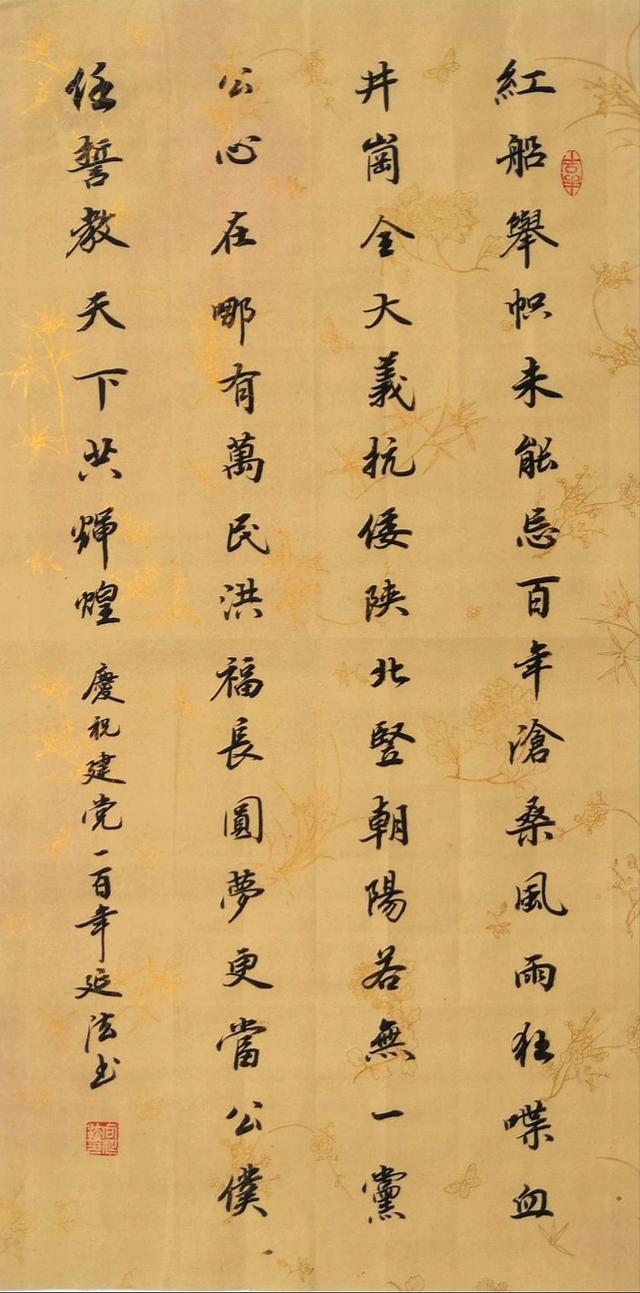 紅船舉幟未能忘百年滄桑風雨狂喋血
井崗全大義抗倭陝北豎朝陽若無一黨
公心在哪有萬民洪福長圓夢更當公僕
任誓教天下共輝煌
慶祝建党一百年延法书